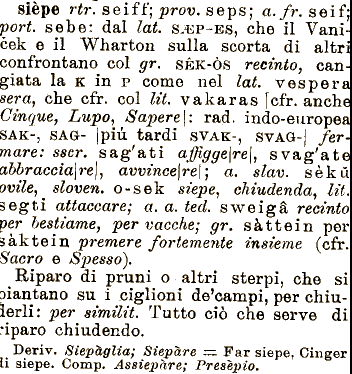 sièpe rtr. seiff; prov. seps; a. fr. seif;
port. sebe: dal lat. SÆP-ES, che il Vani-
ček e il Wharton sulla scorta di altri
confrontano col gr. SÈK-ÒS recinto, can-
giata la K in P come nel lat. vespera
sera, che cfr. col lit. vakaras [cfr. anche
Cinque, Lupo, Sapere]: rad. indo-europea
SAK-, SAG- |più tardi SVAK-, SVAG-| fer-
mare: sscr. sag'ati affigge|re|, svag'ate
abbraccia|re|, avvince|re|; a. slav. sèkŭ
ovile, sloven. o-sek siepe, chiudenda, lit.
segti attaccare; a. a. ted. sweigâ recinto
per bestiame, per vacche; gr. sàttein per
sàktein premere fortemente insieme (cfr.
Sacro e Spesso).
Riparo di pruni o altri sterpi, che si
piantano su i ciglioni de'campi, per chiu-
derli: per similit. Tutto ciò che serve di
riparo chiudendo.
Deriv. Siepàglia; Siepàre = Far siepe, Cinger
di siepe. Comp. Assiepàre; Presèpio.